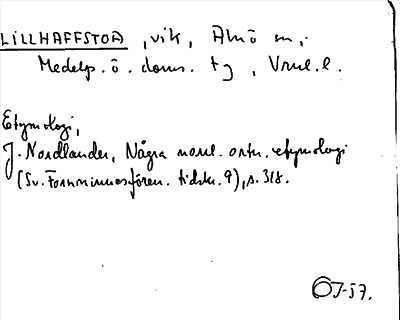 LILLHAFFSTOA, vik, Alnö sn,
Medelp. ö. doms. tg, Vnrl.l.
Etymologi,
J. Nordlander, Några norrl. ortn. etymologi
(Sv. Fornminnesfören. tidskr. 9), s. 318.
OJ-57.